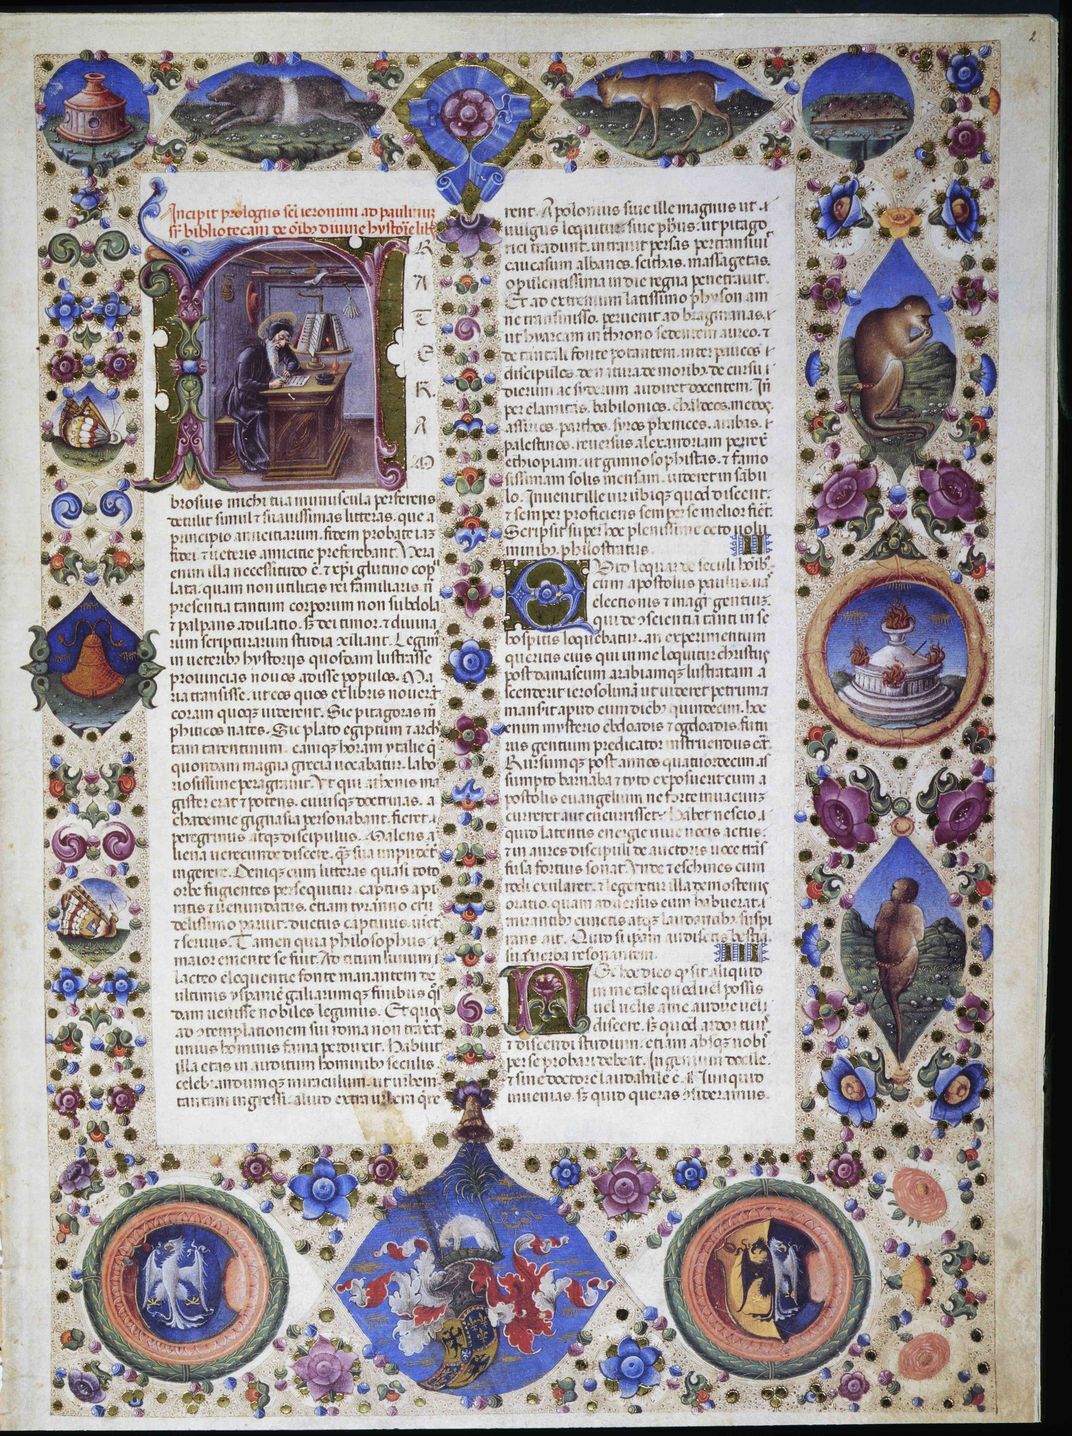 2
Incipit prologus sci ieronimi ad paulinum
fr
bibliotecam de oib divine hystorie lib
F
R
A
T
E
R
A
M
brosius michi tua munuscula perferens
detulit simul & suavissimas litteras. que a
principio amicitiarum. fidem probate iaz
fidei & veteris amicitie preferebant. Vera
enim illa necessitudo e. & xpi glutino cop
lata. quam non utilitas rei familiaris. n
presentia tantum corporum non subdola
& palpans adulatio. sz dei timor. & divina
rum scripturarum studia conciliant. Legim
in veterib hystoriis quosdam lustrasse
provincias novos adisse populos. Ma
ria transisse. ut eos quos ex libris noverat
coram quoque viderent. Sic pitagoras m
phiticos vates. Sic plato egiptum & arch
tam tarentinum. eamque horam ytalie q
quondam magna grecia vocabatur. labo
riosissime peragravit. Ut qui athenis ma
gister erat & potens. cuiusque doctrinas. a
chademie gignasia personabant. fieret.
peregrinus atque discipulus. Malens a
liena verecunde discere. q sua impudet
ingerere. Denique cum litteras quasi toto
orbe fugientes persequitur. captus a py
ratis & venundatus. etiam tyranno cru
delissimo paruit. ductus captivus. vict
& servus. Tamen quia philosophus.
maior emente se fuit. Ad titum livium
lacteo eloquentie fonte manantem de
ultimis yspanie galiarumque finibus q
dam venisse nobiles legimus. Et quos
ad contemplationem sui roma non traxat
unius hominis fama perduxit. Habuit
illa etas in auditum hominib seculis.
celebrandumque miraculum. ut urbem
tantam ingressi. aliud extra urbem qre
rent. Apolonius sive ille magus ut
vulgus loquitur. sive phus. ut pitago
rici tradunt. intravit persas pertransivit
caucasum albanos. scithas. massagetas.
opulentissima indie regna penetravit.
Et ad extremum latissimo physon am
ne transmisso. pervenit ad bragmanas.
ut hyarcam in throno sedentem aureo. &
de tantali fonte potantem. inter paucos
discipulos. de natura de morib. de cursu
dierum ac siderum audiret docentem. In
per elamitas. babilonios. chaldeos. medos.
assirios. parthos. syros phenices. arabas. &
palestinos. reversus alexandriam perrex
ethiopiam. ut gimnosophistas. & famo
sissimam solis mensam. videret in sabu
lo. Invenit ille vir ubique quod disceret.
& semper proficiens semper se melior fieret.
Scripsit super hoc plenissime octo volu
minib. philostratus.
Quid loquar de seculi hoib.
cum apostolus paulus. vas
electionis & magr gentium.
qui de conscientia tanti in se
hospitis loquebatur. an experimentum
queritis eius qui in me loquitur christus
post damascum arabiamque lustratam
ascenderit ierosolimam ut videret petrum &
mansit apud eum dieb quindecim. hoc
enim mysterio ebdoadis & ogdoadis. futu
rus gentium predicator instruendus erat.
Rursumque post annos quatuordecim as
sumpto barnaba & tyto exposuerit cum a
postolis evangelium ne forte in vacuum
curreret aut cucurrisset. Habet nescio
quid latentis energie vive vocis actus.
& in aures discipuli de auctoris voce tras
fusa fortius sonat. Unde & eschines cum
rodi exularet. & legeretur illa demostenis
oratio. quam adversus eum habuerat.
mirantib cunctis atque laudantib. suspi
rans ait. Quid si ipam audissetis bestiam
sua verba resonantem.
Nec hoc dico q sit aliquid
in me tale quod vel possis
vel velis a me audire vel
discere. sz quod ardor tuus
& discendi studium. etiam absque nobis
per se probari debeat. Ingenium docile.
& sine doctore laudabile e. Non quid
invenias. sz quid queras consideramus.